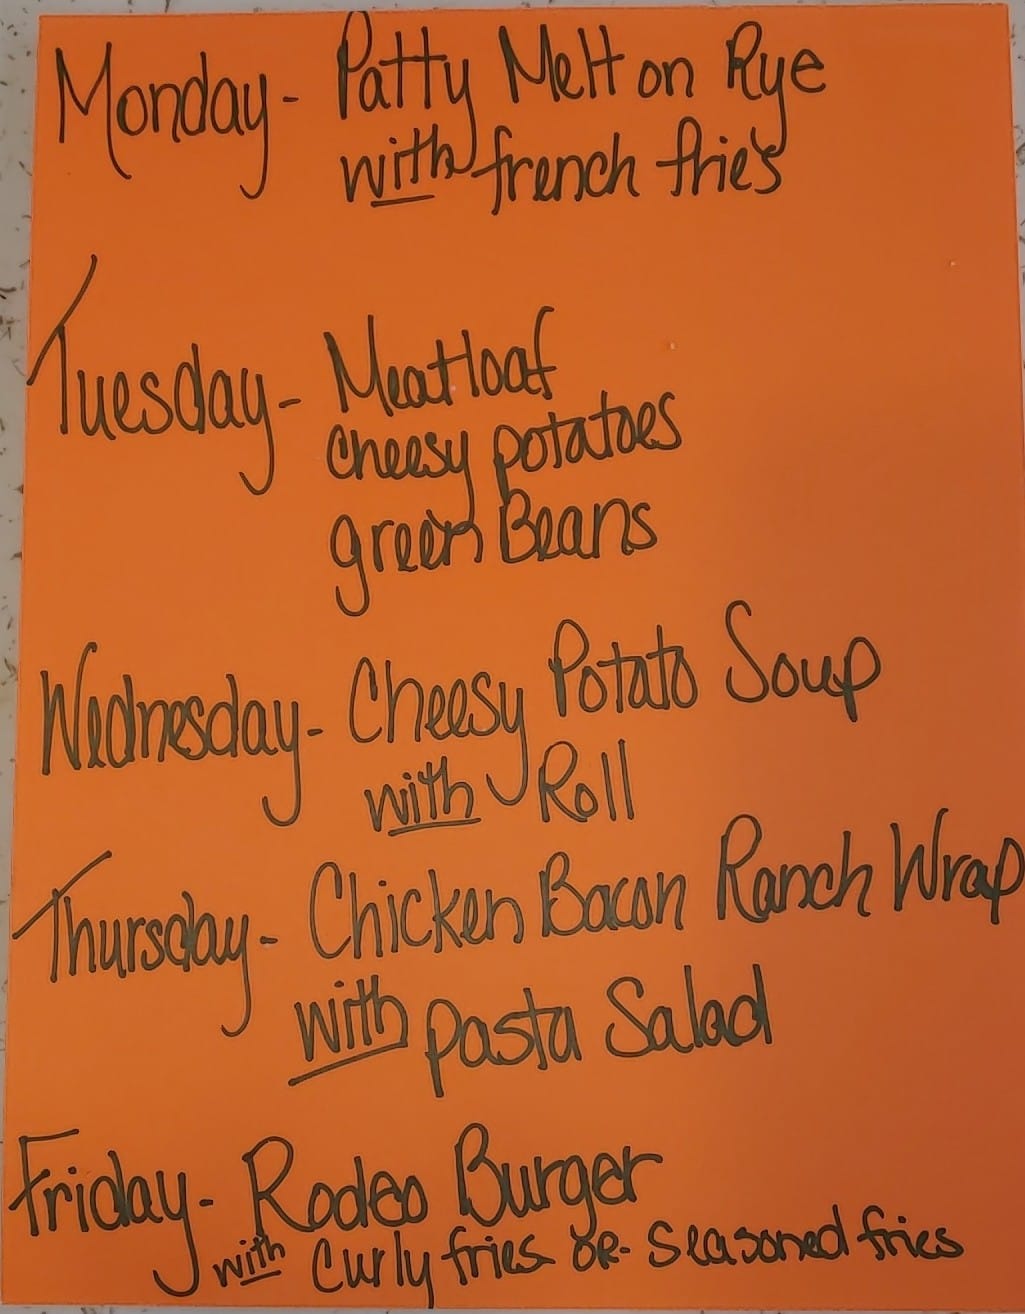 Monday - Patty Melt on Rye
with french fries
Tuesday - Meatloaf
cheesy potatoes
green Beans
Wednesday - Cheesy Potato Soup
with Roll
Thursday - Chicken Bacon Ranch Wrap
with pasta Salad
Friday - Rodeo Burger
with Curly fries OR seasoned fries